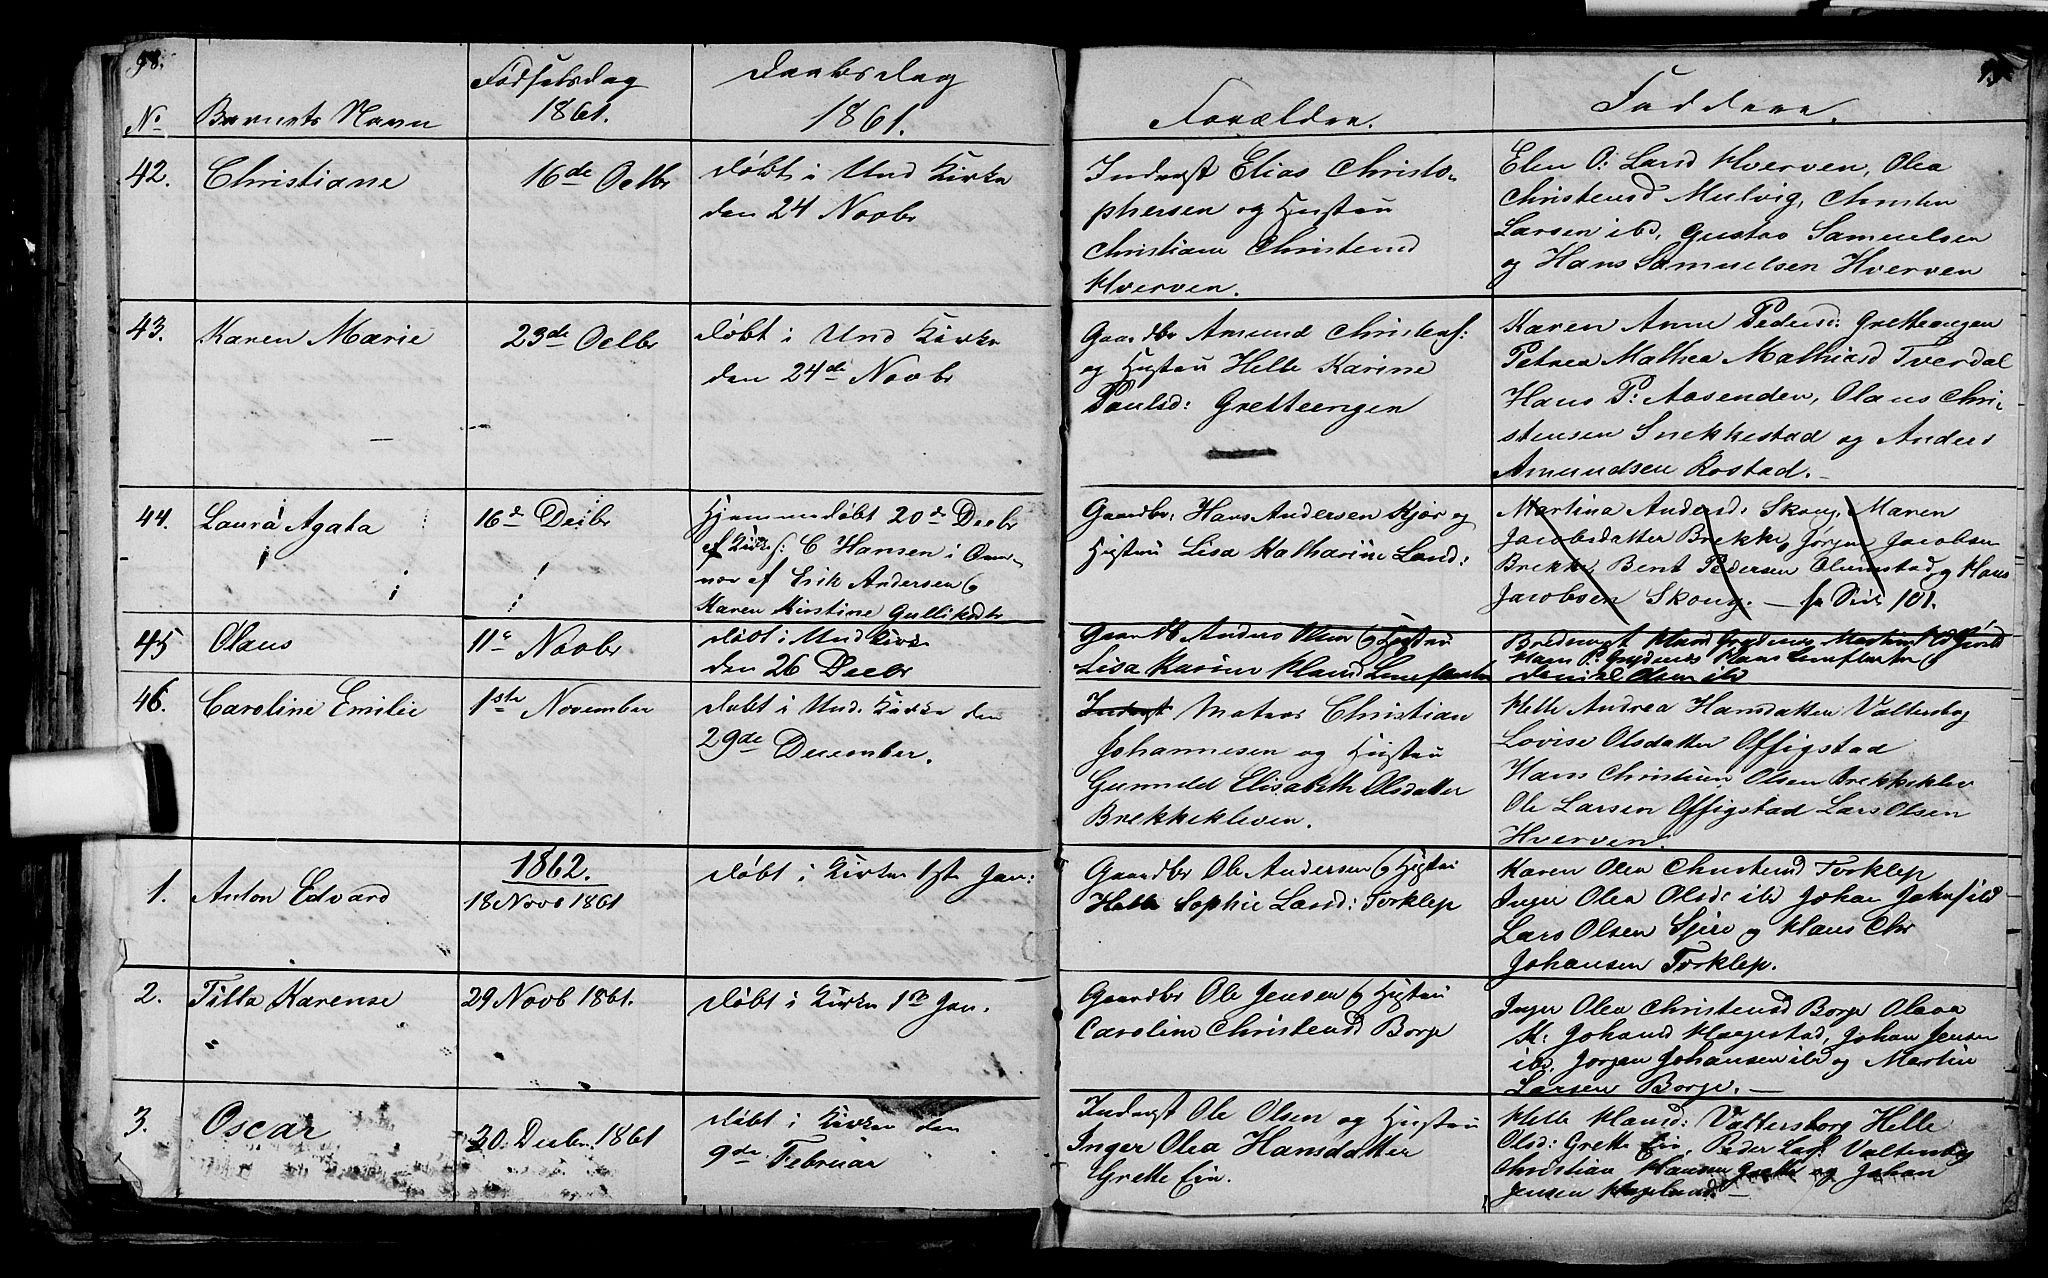 98.
No
Barnets Navn
Fødselsdag
1861.
Daabsdag
1861.
Forældre.
Faddere.
42.
Christiane
16de Octbr
døbt i Und Kirke
den 24 Novbr
Inderst Elias Christo-
phersen og Hustru
Christiane Christensd
Hverven.
Elen O: Land Hverven, Olea
Christensd Mulvig, Christen
Larsen ibd, Gustav Samuelsen
og Hans Samuelsen Hverven
43.
Karen Marie
23de Octbr
døbt i Und Kirke
den 24de Novbr
Gaardbr Amund Christens:
og Hustru Helle Karine
Paulsd: Gretteengen
Karen Anne Pedersd: Gretteengen
Petrea Mathea Mathiasd Tverdal
Hans P: Aasenden, Olaus Chri-
stensen Snekkestad og Anders
Amundsen Rostad.
44.
Laura Agata
16d Decbr
Hjemmedøbt 20d Decbr
af Kirkes: C Hansen i
af Erik Andersen &
Karen Kirstine Gulliksdtr
Gaardbr. Hans Andersen Kjær og
Hustru Lisa Katharine Land:
Martina Andersd: Skoug, Maren
Jacobsdatter Brekke, Jørgen Jacobsen
Brekke, Bent Pedersen Olumstad og Hans
Jacobsen Skoug. — se Side 101.
45
Olaus
11e Novbr
døbt i Und Kirke
den 26 Decbr
Gaardb Anders Olsen & Hustru
Lisa Karine Hansd
Hans P: Grydenes Hans
Daniel Olsen ibd
46.
Caroline Emilie
1ste November
døbt i Und. Kirke den
29de December.
Inderst Matros Christian
Johannesen og Hustru
Gunnild Elisabeth Olsdatter
Brekkekleven.
Helle Andrea Hansdatter Valtersbog
Lovise Olsdatter Offigstad
Hans Christian Olsen Brekkeklev
Ole Larsen Offigstad Lars Olsen
Hverven.
1.
Anton Edvard
1862.
18 Novb 1861
døbt i Kirken 1ste Jan:
Gaardbr Ole Andersen & Hustru
Helle Sophie Land: Torklep
Karen Olea Christensd Torklep
Inger Olea Olsd: ibd Johan Johns ibd
Lars Olsen Sjue og Hans Chr
Johansen Torklep.
2.
Tilla Karense
29 Novb 1861.
døbt i Kirke 1ste Jan.
Gaardbr Ole Jensen & Hustru
Caroline Christensd Borge
Inger Olea Christensd Borge Olava
K: Johansd Hagestad, Johan Jensen
ibd. Jørgen Johansen ibd og Martin
Larsen Borge. —
3.
Oscar
20. Decbr. 1861
døbt i Kirken den
9de Februar
Inderst Ole Olsen og Hustru
Inger Olea Hansdatter
Grette Ein.
Helle Hansd: Valtersborg Helle
Olsd: Grette Ein, Peder Valtersbog
Christian Hansen Grette og Johan
Jensen Hagelund. —